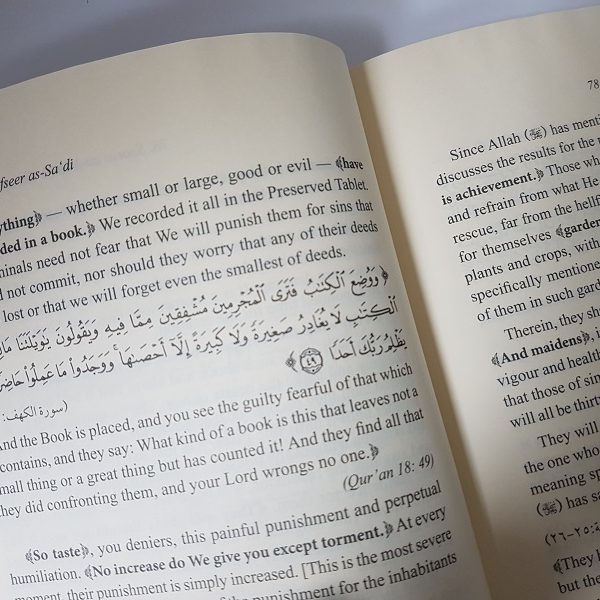 fseer as-Sa‘di
ything﴿ — whether small or large, good or evil — ﴾have
ded in a book.﴿ We recorded it all in the Preserved Tablet.
minals need not fear that We will punish them for sins that
d not commit, nor should they worry that any of their deeds
lost or that we will forget even the smallest of deeds.
﴿وَوُضِعَ ٱلْكِتَٰبُ فَتَرَى ٱلْمُجْرِمِينَ مُشْفِقِينَ مِمَّا فِيهِ وَيَقُولُونَ يَٰوَيْلَتَنَا مَالِ
ٱلْكِتَٰبِ لَا يُغَادِرُ صَغِيرَةً وَلَا كَبِيرَةً إِلَّآ أَحْصَىٰهَا ۚ وَوَجَدُوا۟ مَا عَمِلُوا۟ حَاضِرً
يَظْلِمُ رَبُّكَ أَحَدًا ٤٩﴾
(سورة الكهف:
And the Book is placed, and you see the guilty fearful of that which
contains, and they say: What kind of a book is this that leaves not a
small thing or a great thing but has counted it! And they find all that
they did confronting them, and your Lord wrongs no one.﴿
(Qur’an 18: 49)
﴾So taste﴿, you deniers, this painful punishment and perpetual
humiliation. ﴾No increase do We give you except torment.﴿ At every
moment, their punishment is simply increased. [This is the most severe
of the punishment for the inhabitants
78
Since Allah (ﷻ) has menti
discusses the results for the
is achievement.﴿ Those wh
and refrain from what He
rescue, far from the hellf
for themselves ﴾garden
plants and crops, with
specifically mentione
of them in such gard
Therein, they sh
﴾And maidens﴿, i
vigour and health
that those of sin
will all be thirt
They will
the one who
meaning sp
(ﷻ) has sa
٢٥-٢٦)
﴾They h
but the